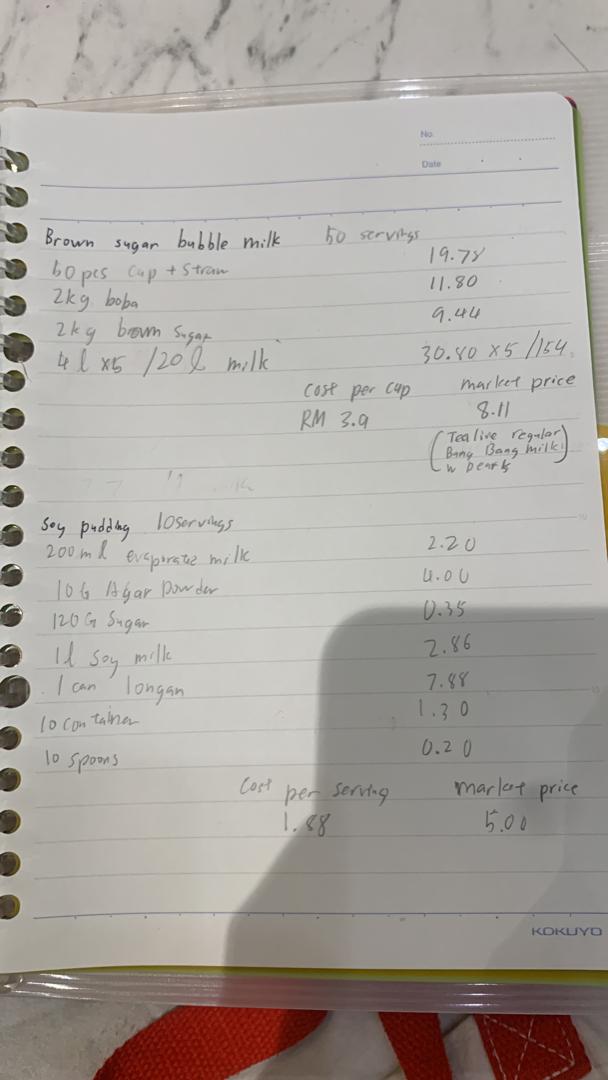 No.
Date
Brown sugar bubble milk 50 servings
50 pcs cup + straw 19.78
2kg boba 11.80
2kg brown sugar 9.44
4 l x5 /20 l milk 30.80 x5 /154
cost per cup market price
RM 3.9 8.11
(Tealive regular
Bang Bang milk
w pearls)
Soy pudding 10servings
200 ml evaporate milk 2.20
10G Agar powder 4.00
120G Sugar 0.35
1l soy milk 2.86
1 can longan 7.88
10 container 1.30
10 spoons 0.20
Cost per serving market price
1.88 5.00
KOKUYO